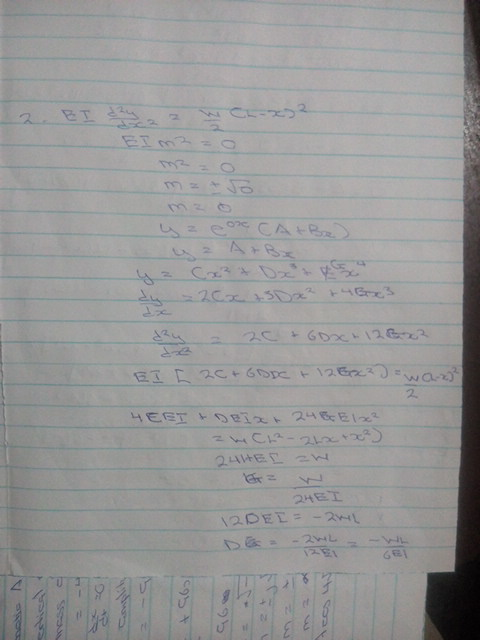 2. EI d²y/dx² = w/2 (L-x)²
EI m² = 0
m² = 0
m = ±√0
m = 0
y = e^0x (A+Bx)
y = A+Bx
y = Cx² + Dx³ + Gx⁴
dy/dx = 2Cx + 3Dx² + 4Gx³
d²y/dx² = 2C + 6Dx + 12Gx²
EI [2C + 6Dx + 12Gx²] = w/2 (L-x)²
4CEI + DEIx + 24GEIx²
= w(L² - 2Lx + x²)
24HEI = w
G = w/24EI
12DEI = -2wL
D = -2wL/12EI = -wL/6EI